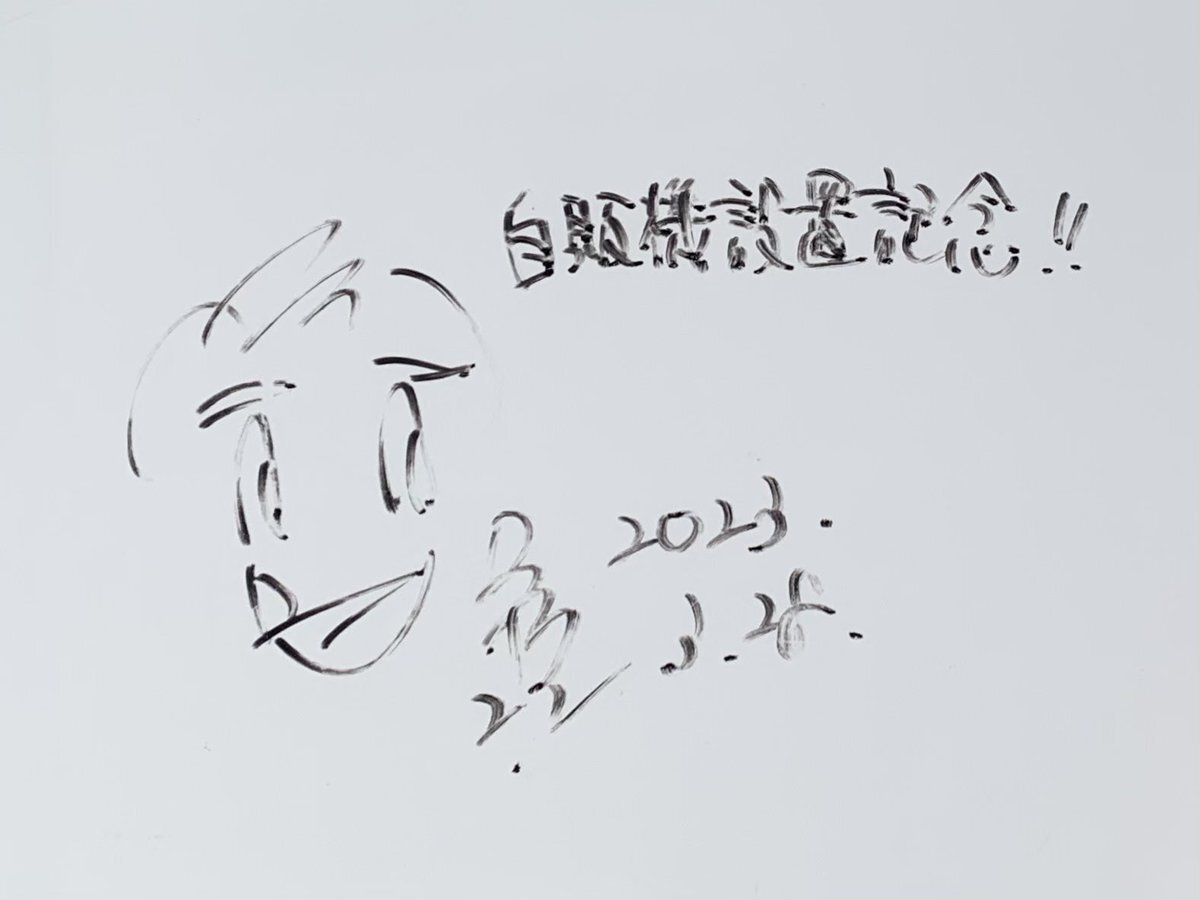 自販機設置記念!!
2023.
3.28.